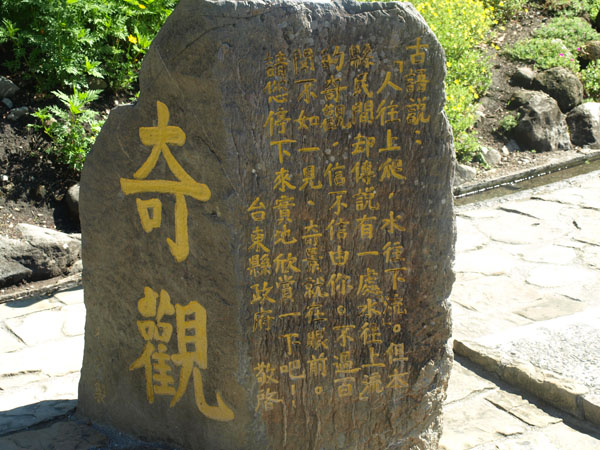 古語說：
「人往上爬，水往下流。但本
縣民間却傳說有一處水往上流
的奇觀，信不信由你。不過百
聞不如一見，奇景就在眼前。
請您停下來實地欣賞一下吧！
台東縣政府 敬啓
奇觀